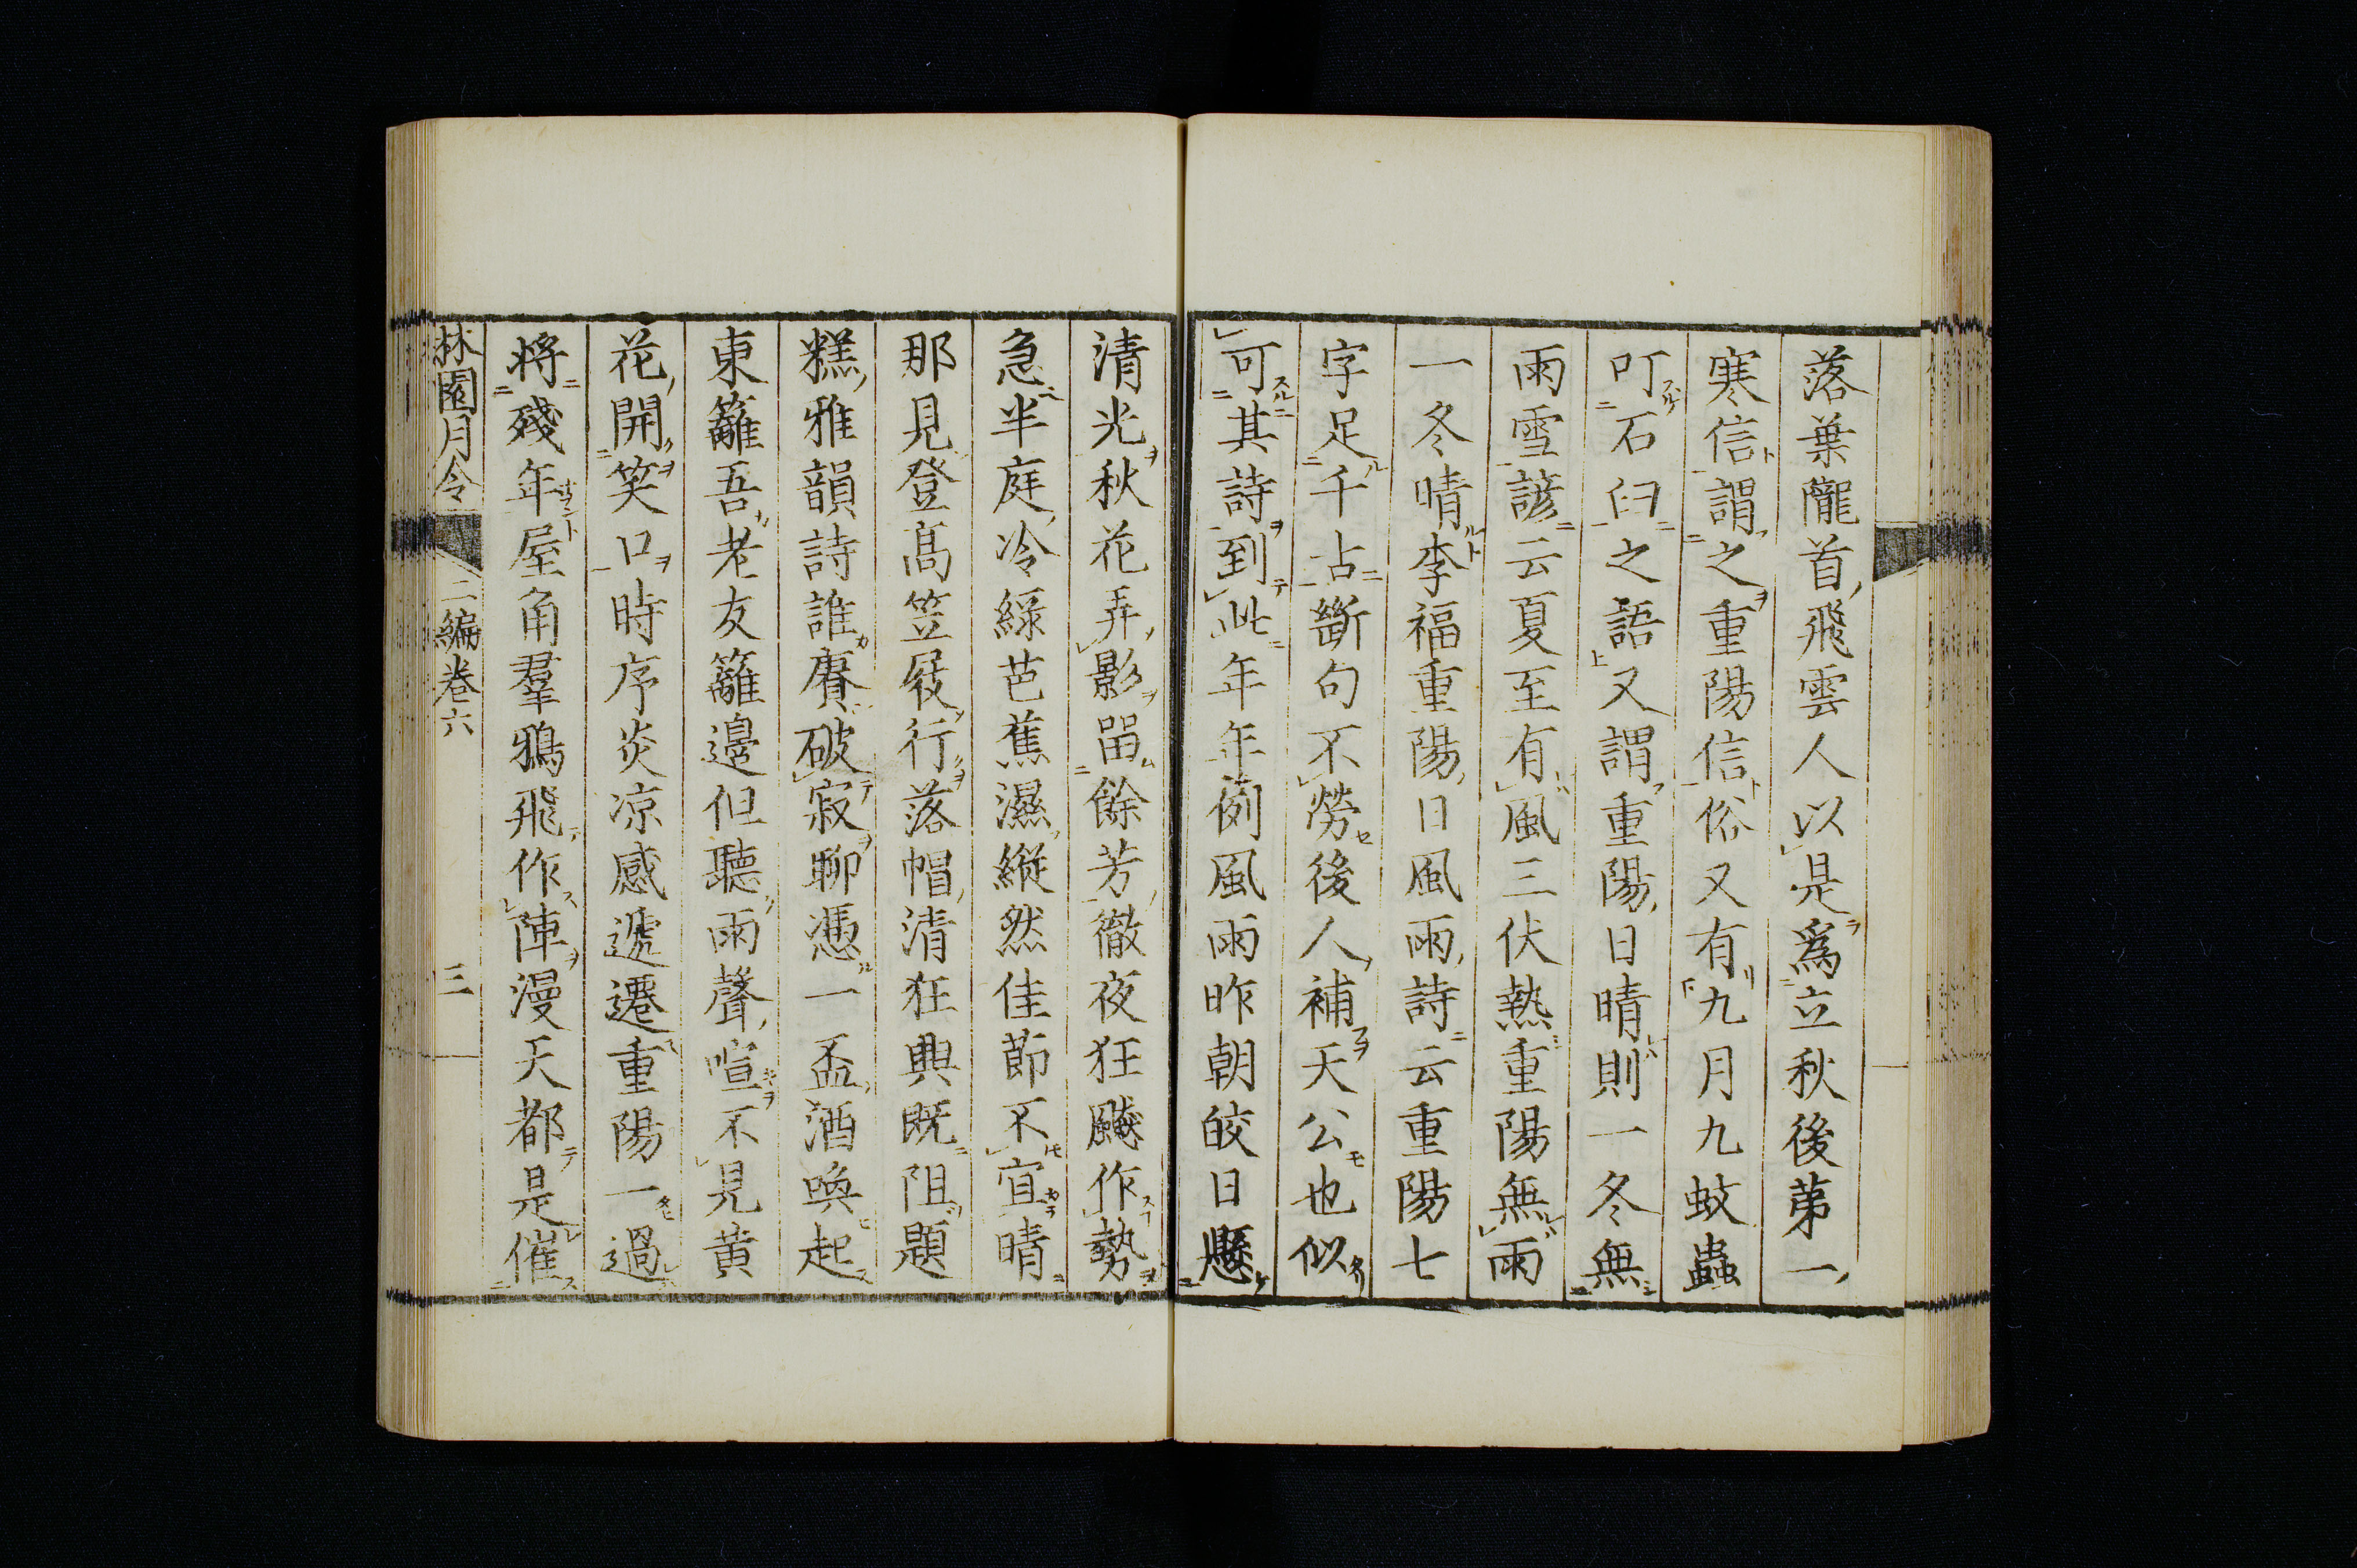 落葉隴首飛雲人以是爲立秋後苐一
寒信謂之重陽信俗又有九月九蚊蟲
叮石臼之語又謂重陽日晴則一冬無
雨雪諺云夏至有風三伏熱重陽無雨
一冬晴李福重陽日風雨詩云重陽七
字足千占斷句不勞後人補天公也似
可其詩到此年年例風雨昨朝皎日懸
清光秋花弄影畱餘芳徹夜狂飈作勢
急半庭冷綠芭蕉濕縱然佳節不宜晴
那見登高笠屐行落帽清狂興既阻題
糕雅韻詩誰賡破寂聊憑一盃酒喚起
東籬吾老友籬邊但聽雨聲喧不見黄
花開笑口時序炎凉感遞遷重陽一過
將殘年屋角羣鴉飛作陣漫天都是催
林園月令 二編卷六 三